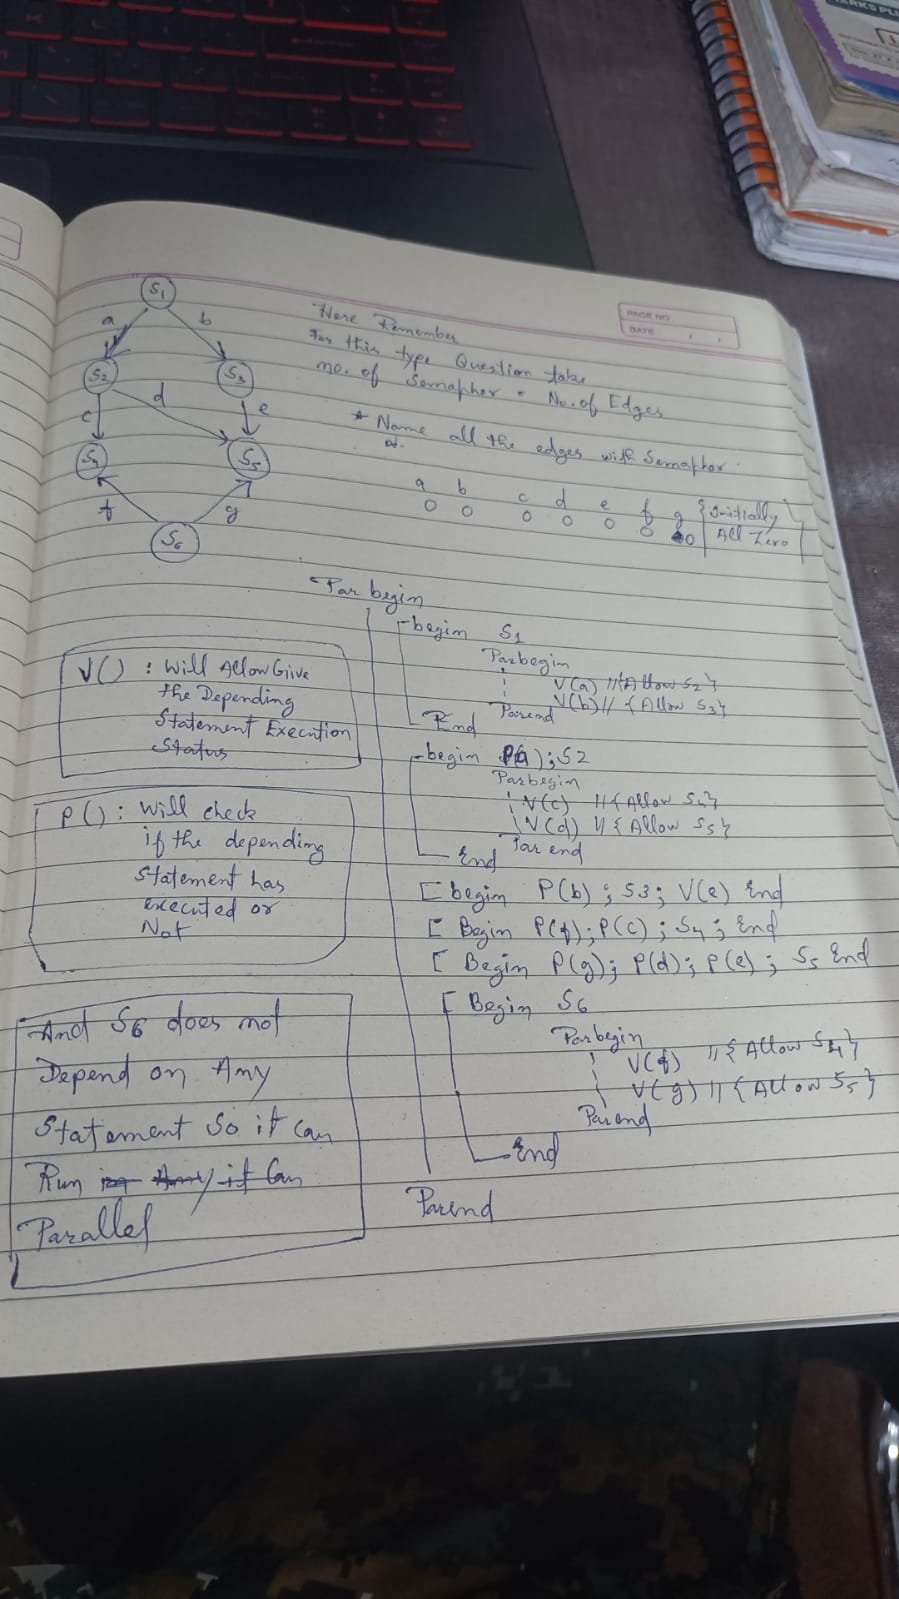 ARKS PU
PAGE NO
DATE
S1
a
b
S2
S3
d
c
e
S4
S5
f
g
S6
Here Remember
For this type Question take
no. of Semapher = No. of Edges
* Name all the edges with Semaphor.
a b c d e f g { Initially
0 0 0 0 0 0 0 All Zero }
V() : Will Allow Give
the Depending
Statement Execution
Status
P() : Will check
if the depending
statement has
executed or
Not
And S6 does not
Depend on Any
Statement So it can
Run in Any it Can
Parallel
Par begin
begin S1
Parbegin
V(a) // {Allow S2}
V(b) // {Allow S3}
Parend
End
begin P(a); S2
Parbegin
V(c) // {Allow S4}
V(d) // {Allow S5}
Par end
End
[ begin P(b) ; S3; V(e) End
[ Begin P(f); P(c) ; S4 ; End
[ Begin P(g); P(d); P(e) ; S5 End
[ Begin S6
Parbegin
V(f) // {Allow S4}
V(g) // {Allow S5}
Parend
End
Parend